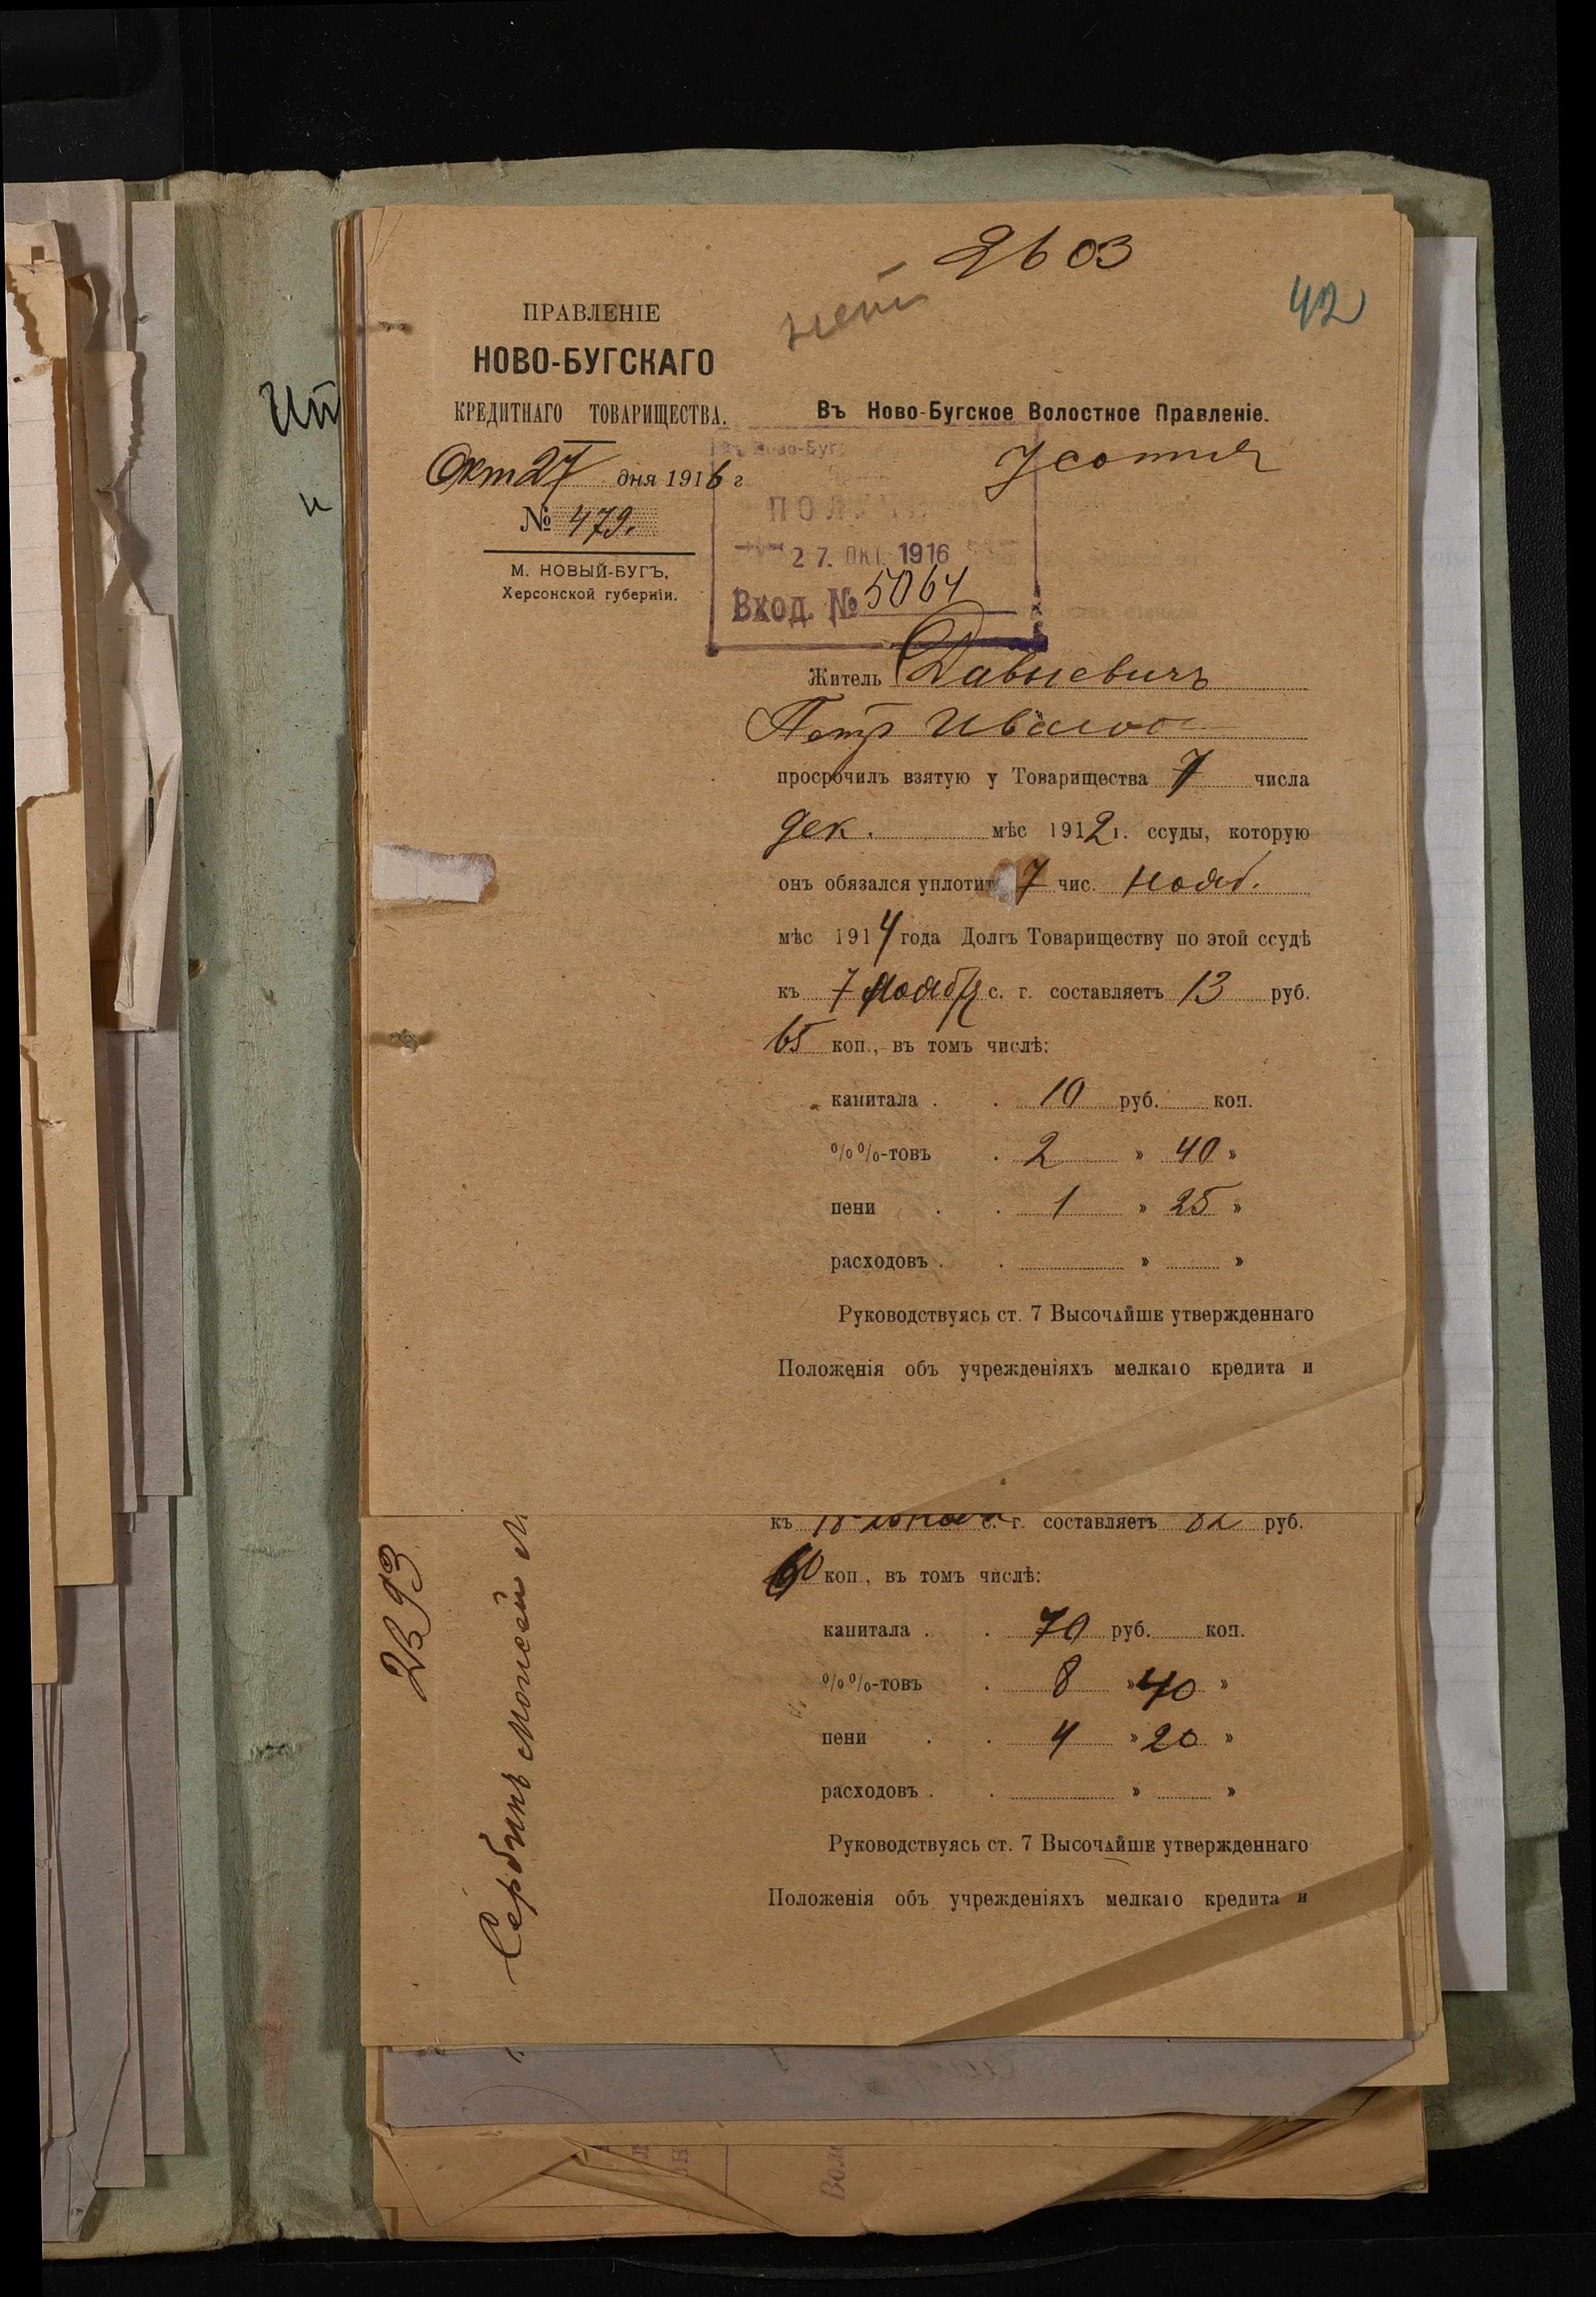 2603
нетъ
42
ПРАВЛЕНІЕ
НОВО-БУГСКАГО
КРЕДИТНАГО ТОВАРИЩЕСТВА.
Окт 27 дня 1916 г
№ 479.
М. НОВЫЙ-БУГЪ,
Херсонской губерніи.
Въ Ново-Бугское Волостное Правленіе.
7 сотня
27. ОКТ. 1916
Вход. № 5064
Житель
Петръ Иванов
просрочилъ взятую у Товарищества 7 числа
дек. мѣс 1912 г. ссуды, которую
онъ обязался уплотит 7 чис. нояб.
мѣс 1914 года Долгъ Товариществу по этой ссудѣ
къ 7 ноября с. г. составляетъ 13 руб.
65 коп., въ томъ числѣ:
капитала . . 10 руб. коп.
%%-товъ . 2 » 40 »
пени . . 1 » 25 »
расходовъ . . » »
Руководствуясь ст. 7 Высочайше утвержденнаго
Положенія объ учрежденіяхъ мелкаго кредита и
къ 18 с. г. составляетъ 82 руб.
60 коп., въ томъ числѣ:
капитала . . 70 руб. коп.
%%-товъ . 8 » 40 »
пени . . 4 » 20 »
расходовъ . . » »
Руководствуясь ст. 7 Высочайше утвержденнаго
Положенія объ учрежденіяхъ мелкаго кредита и
2593
Сербинъ Моисей